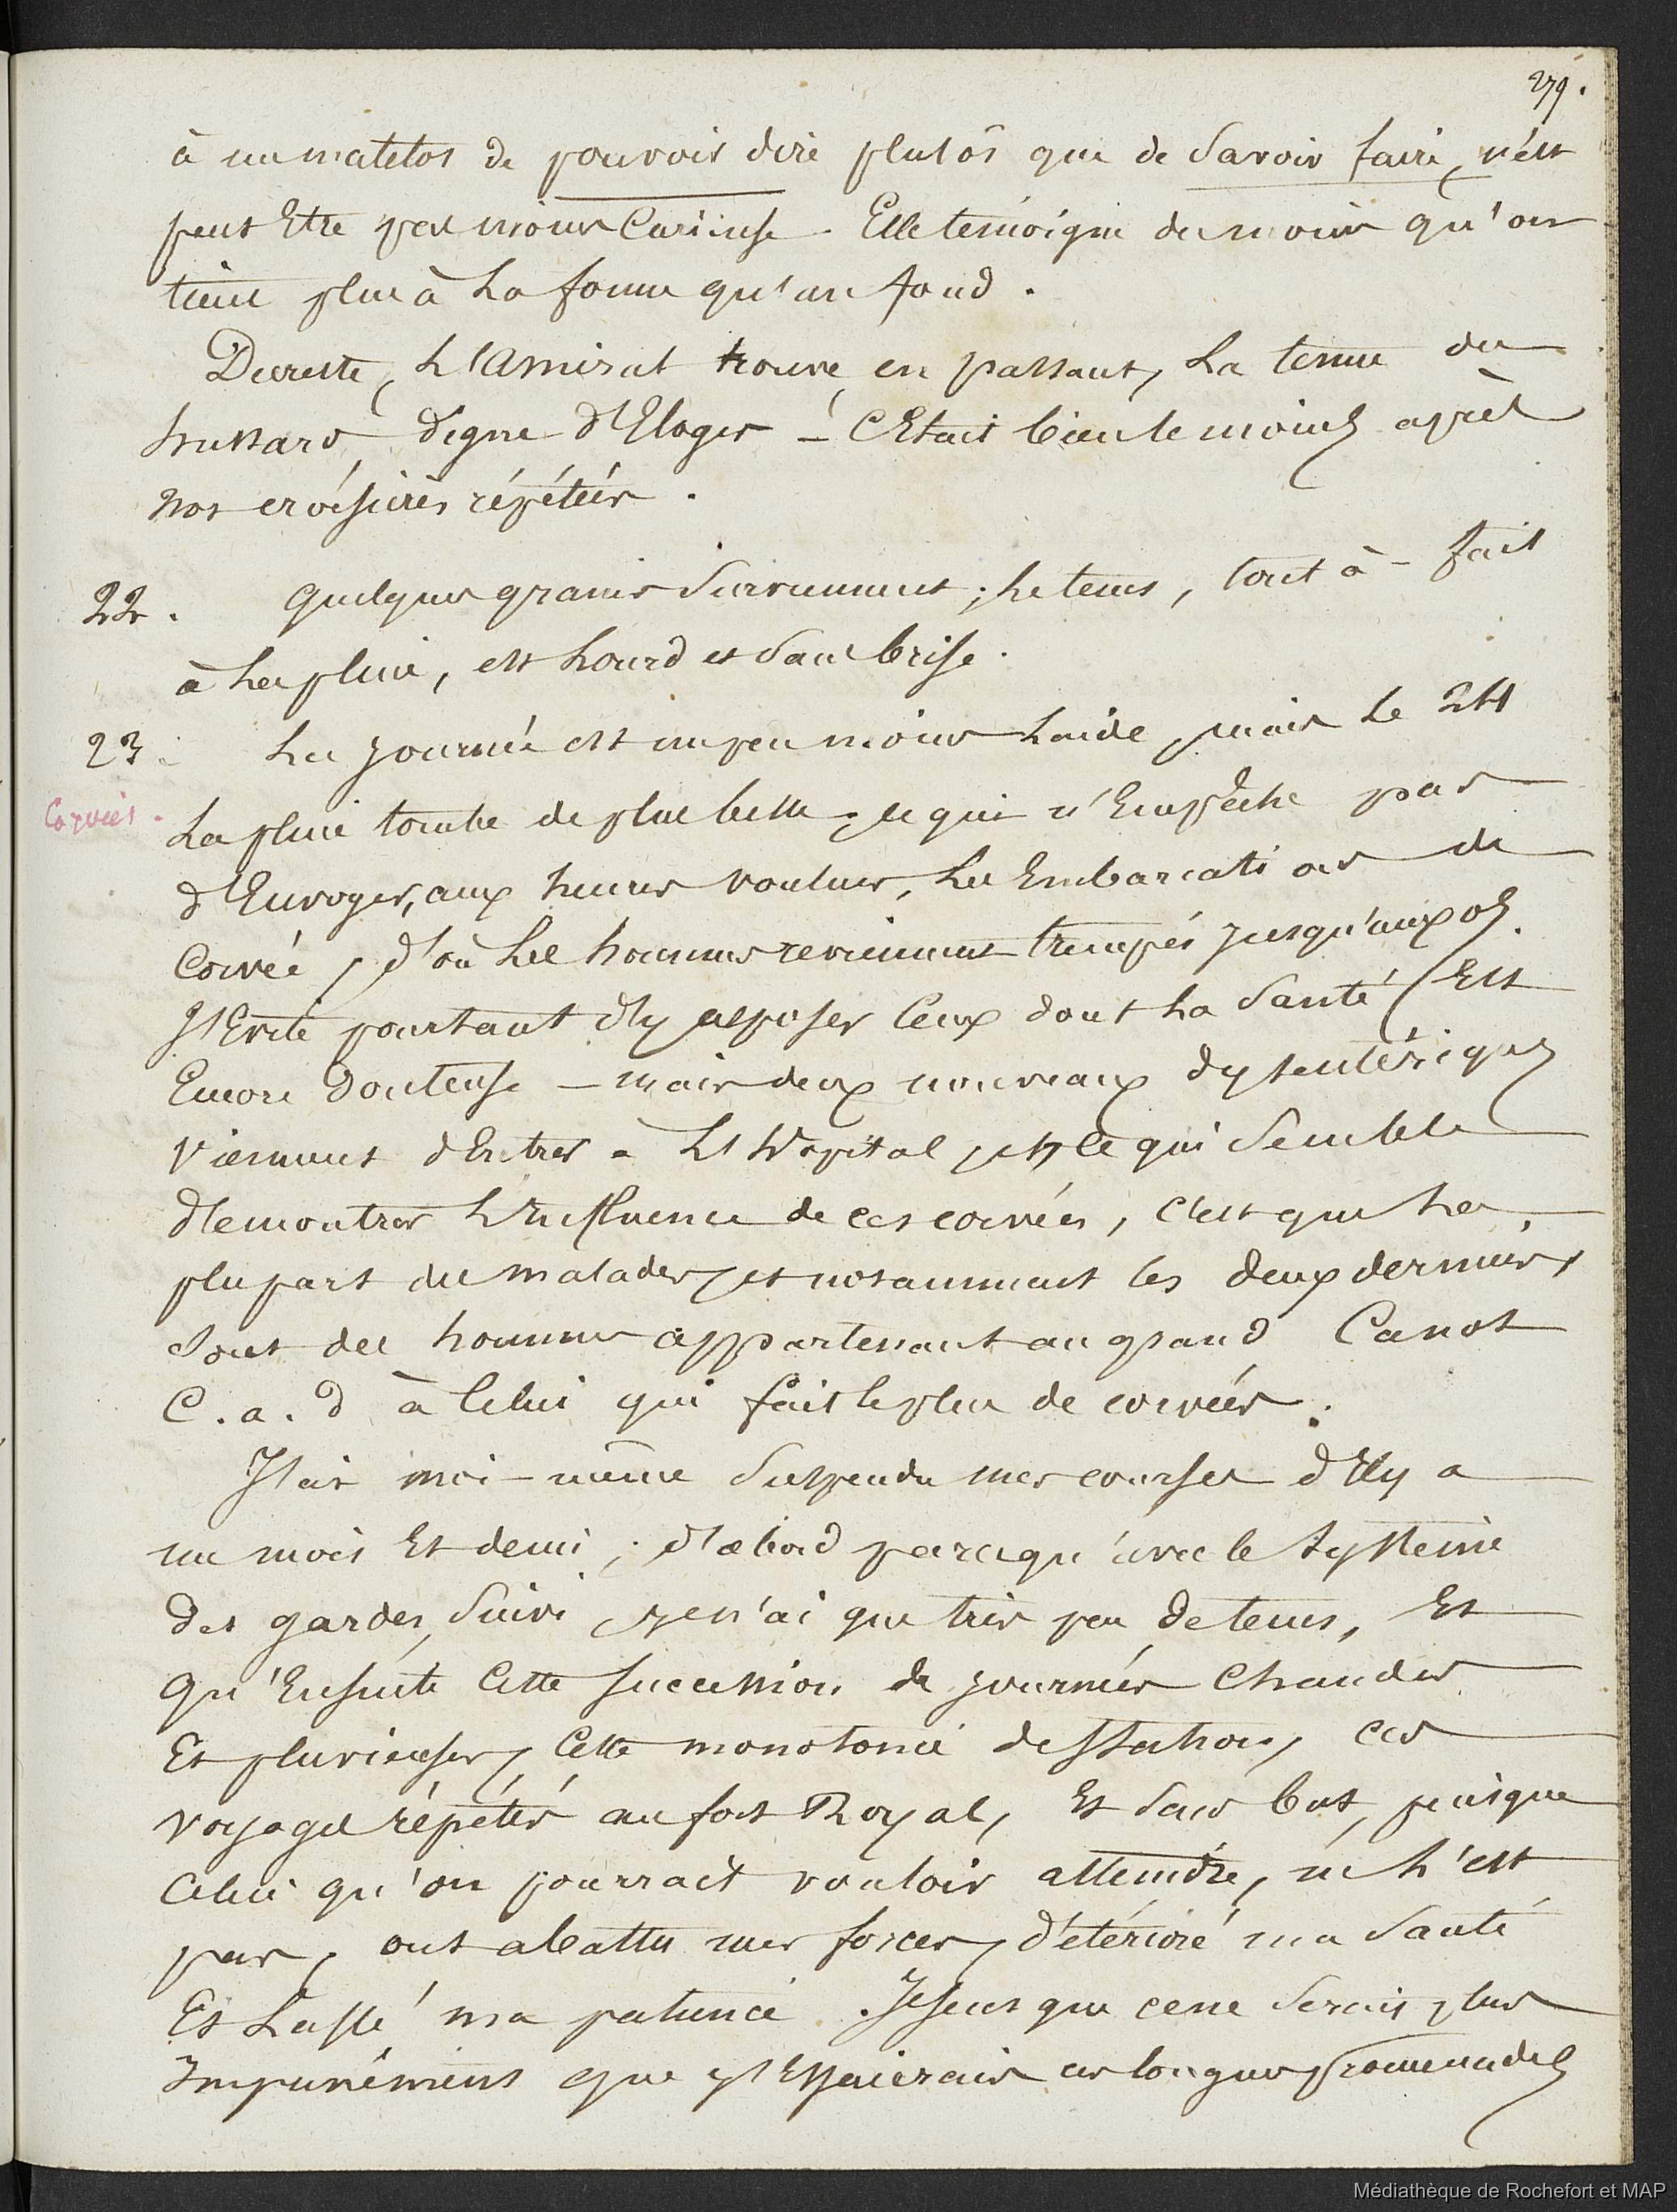 279.
à un matelot de pouvoir dire plutôt que de Savoir faire, n'est
peut Etre pas moins Curieuse. Elle témoigne du moins qu'on
tient plus à La forme qu'au fond.
Dureste, L'Amiral trouve, en passant, La tenue du
hussard, digne d'Eloges – C'Etait bien le moins après
nos croisières répétées.
22. Quelques grains Surviennent; Le tems, tout à-fait
à La pluie, est Lourd et Sans brise.
23. La journée est un peu moins Laide, mais Le 24
Corvées.
La pluie tombe de plus belle; ce qui n'Empêche pas
d'Envoyer, aux heures voulues, Les Embarcations de
Corvée, d'où Les hommes reviennent trempés jusqu'aux os.
J'Evite pourtant d'y exposer Ceux dont La Santé Est
Encore Douteuse – mais deux nouveaux dysentériques
Viennent d'Entrer à L'hôpital, et ce qui Semble
démontrer L'Influence de ces corvées, c'est que La
plupart des malades, et notamment les deux derniers,
Sont des hommes appartenant au grand Canot
C. a. d à Celui qui fait le plus de corvées.
J'ai moi-même Suspendu mes courses d'Il y a
un mois Et demi; d'abord parcequ'avec le Système
des gardes Suivi, je n'ai que très peu de tems, Et
qu'Ensuite Cette Succession de journées Chaudes
Et pluvieuses, Cette monotonie de Station, ces
voyages répétés au fort Royal, Et Sans but, puisque
Celui qu'on pourrait vouloir atteindre, ne L'est
pas, ont abattu mes forces, détérioré ma Santé
Et Lassé ma patience. Je Sens que ce ne Serait plus
Impunément que j'Essaierais ces longues promenades
Médiathèque de Rochefort et MAP